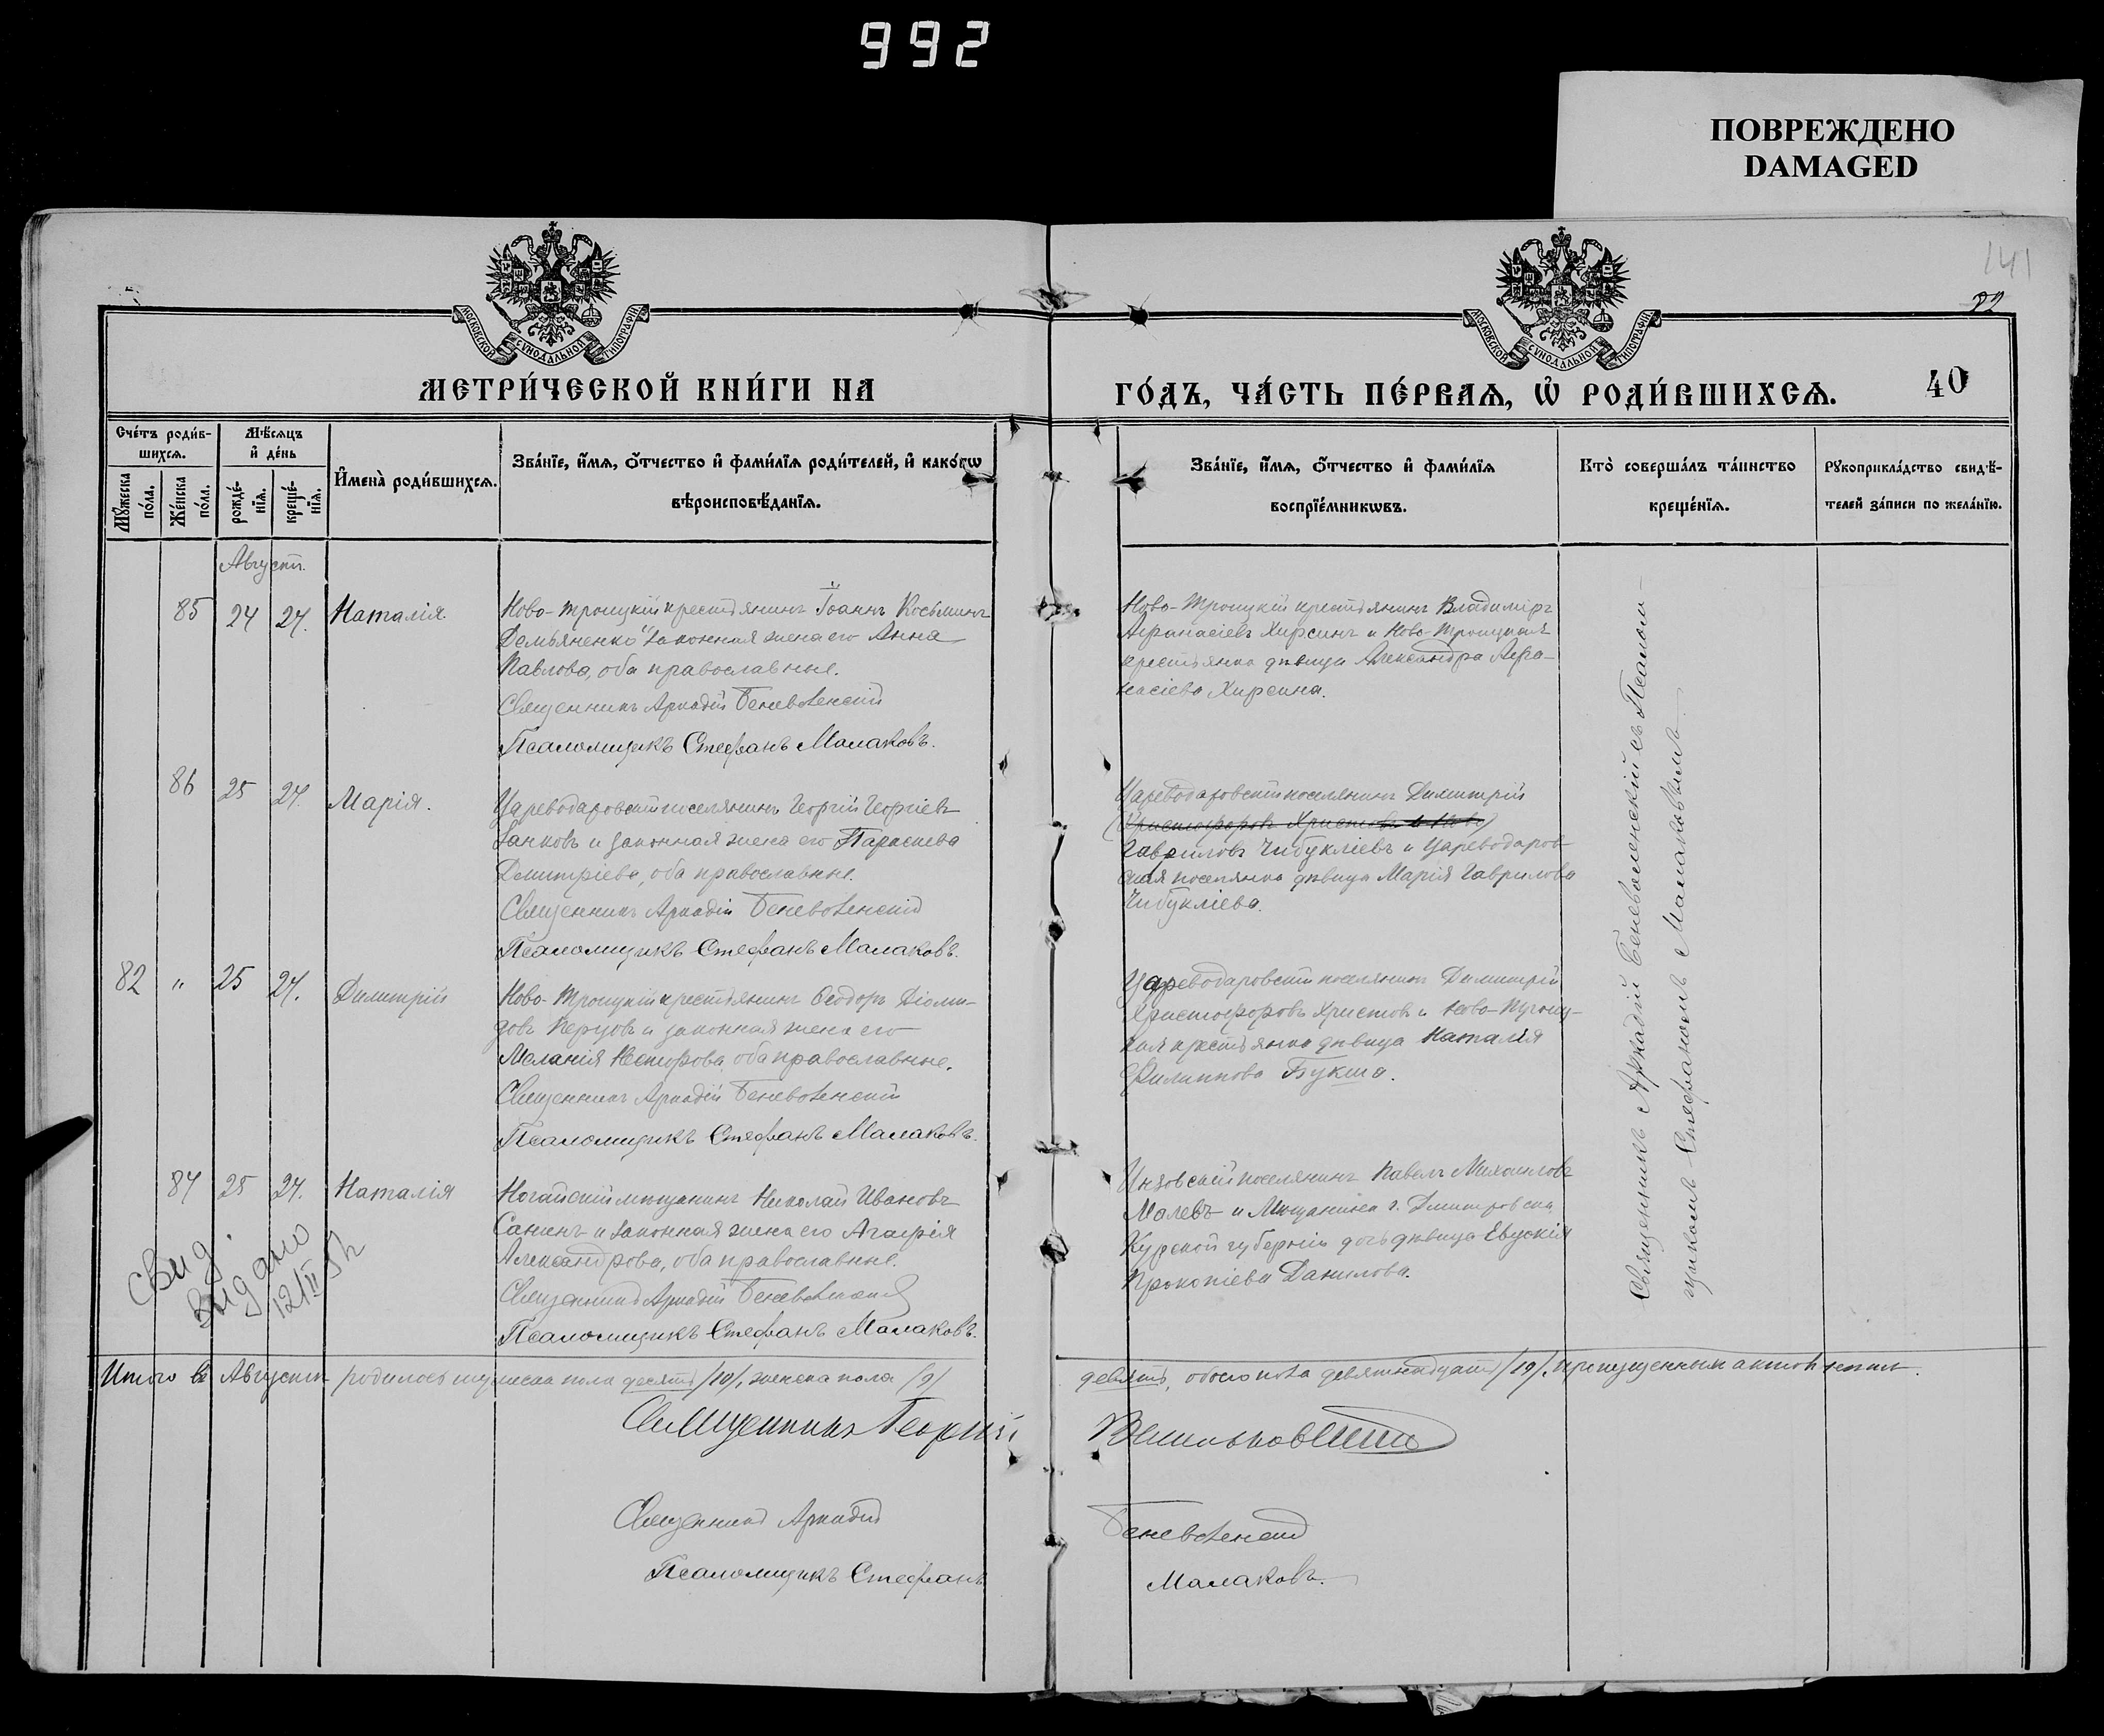 992
ПОВРЕЖДЕНО
DAMAGED
141
92
МОСКОВСКОЙ СУНОДАЛЬНОЙ ТИПОГРАФІИ
МОСКОВСКОЙ СУНОДАЛЬНОЙ ТИПОГРАФІИ
МЕТРИ́ЧЕСКОЙ КНИ́ГИ НА
ГО́ДЪ, ЧА́СТЬ ПЕ́РВАѦ, Ѡ҆ РОДИ́ВШИХСѦ.
40
Сче́тъ роди́в-
шихсѧ.
Мѣ́сѧцъ
и҆ де́нь
Мꙋ́жеска
по́ла.
Же́нска
по́ла.
рожде́-
нїѧ.
креще́-
нїѧ.
И҆мена̀ роди́вшихсѧ.
Зва́нїе, и҆́мѧ, ѻ҆́тчество и҆ фами́лїѧ роди́телей, и҆ како́гѡ
вѣроисповѣ́данїѧ.
Зва́нїе, и҆́мѧ, ѻ҆́тчество и҆ фами́лїѧ
воспрїе́мникѡвъ.
Кто̀ соверша́лъ та́инство
креще́нїѧ.
Рꙋкоприкла́дство свидѣ́-
телей за́писи по жела́нїю.
Августъ.
85 24 27. Наталія.
Ново-Троицкій крестьянинъ Іоаннъ Косьминъ
Демьяненко и законная жена его Анна
Павлова, оба православные.
Священникъ Аркадій Беневоленскій
Псаломщикъ Стефанъ Малаковъ.
Ново-Троицкій крестьянинъ Владиміръ
Аѳанасіевъ Хирсинъ и Ново-Троицкая
крестьянка дѣвица Александра Аѳа-
насіева Хирсина.
86 25 27. Марія.
Цареводаровскій поселянинъ Георгій Георгіевъ
Занковъ и законная жена его Параскева
Димитріева, оба православные.
Священникъ Аркадій Беневоленскій
Псаломщикъ Стефанъ Малаковъ.
Цареводаровскій поселянинъ Димитрій
(Христофоровъ Христовъ и Ново)
Гавриловъ Чибукліевъ и Цареводаров-
ская поселянка дѣвица Марія Гаврилова
Чибукліева.
82 " 25 27. Димитрій
Ново-Троицкій крестьянинъ Ѳеодоръ Діоми-
довъ Перцовъ и законная жена его
Меланія Несторова, оба православные.
Священникъ Аркадій Беневоленскій
Псаломщикъ Стефанъ Малаковъ.
Цареводаровскій поселянинъ Димитрій
Христофоровъ Христовъ и Ново-Троиц-
кая крестьянка дѣвица Наталія
Филиппова Букша.
87 25 27. Наталія
Ногайскій мѣщанинъ Николай Ивановъ
Санинъ и законная жена его Агаѳія
Александрова, оба православные.
Священникъ Аркадій Беневоленскій
Псаломщикъ Стефанъ Малаковъ.
Инзовскій поселянинъ Павелъ Михаиловъ
Малевъ и Мѣщанина г. Дмитровска
Курской губерніи дочь дѣвица Евдокія
Прокопіева Данилова.
Свид.
видано
12/II
Священникъ Аркадій Беневоленскій съ Псалом-
щикомъ Стефаномъ Малаковымъ
Итого въ Августѣ родилось мужеска пола десять /10/, женска пола /9/
девять, обоего пола девятнадцать /19/. пропущенныхъ актовъ нѣтъ.
Священникъ Георгій
Священникъ Аркадій
Беневоленскій
Псаломщикъ Стефанъ
Малаковъ.